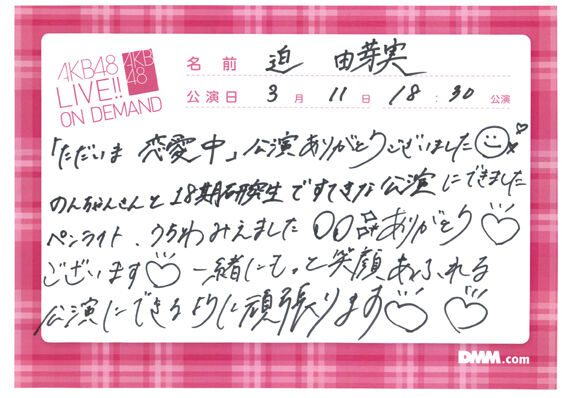 AKB48
LIVE!!
ON DEMAND
AKB
48
名前 迫 由芽実
公演日 3月 11日 18:30 公演
「ただいま 恋愛中」公演ありがとうございました
のんちゃんさんと18期研究生ですてきな公演にできました
ペンライト、うちわみえました ありがとう
ございます 一緒にもっと笑顔あふれる
公演にできるように頑張ります
DMM.com